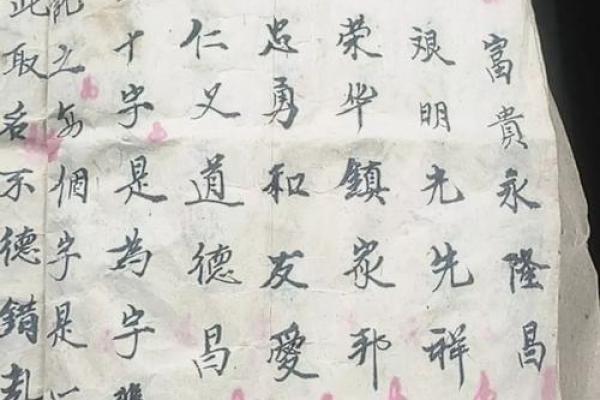 富貴永隆昌
明光先祥
荣华鎮家邦
忠勇和友愛
仁义道德昌
十字是為字
之每個字是一
此取名不德錯乱